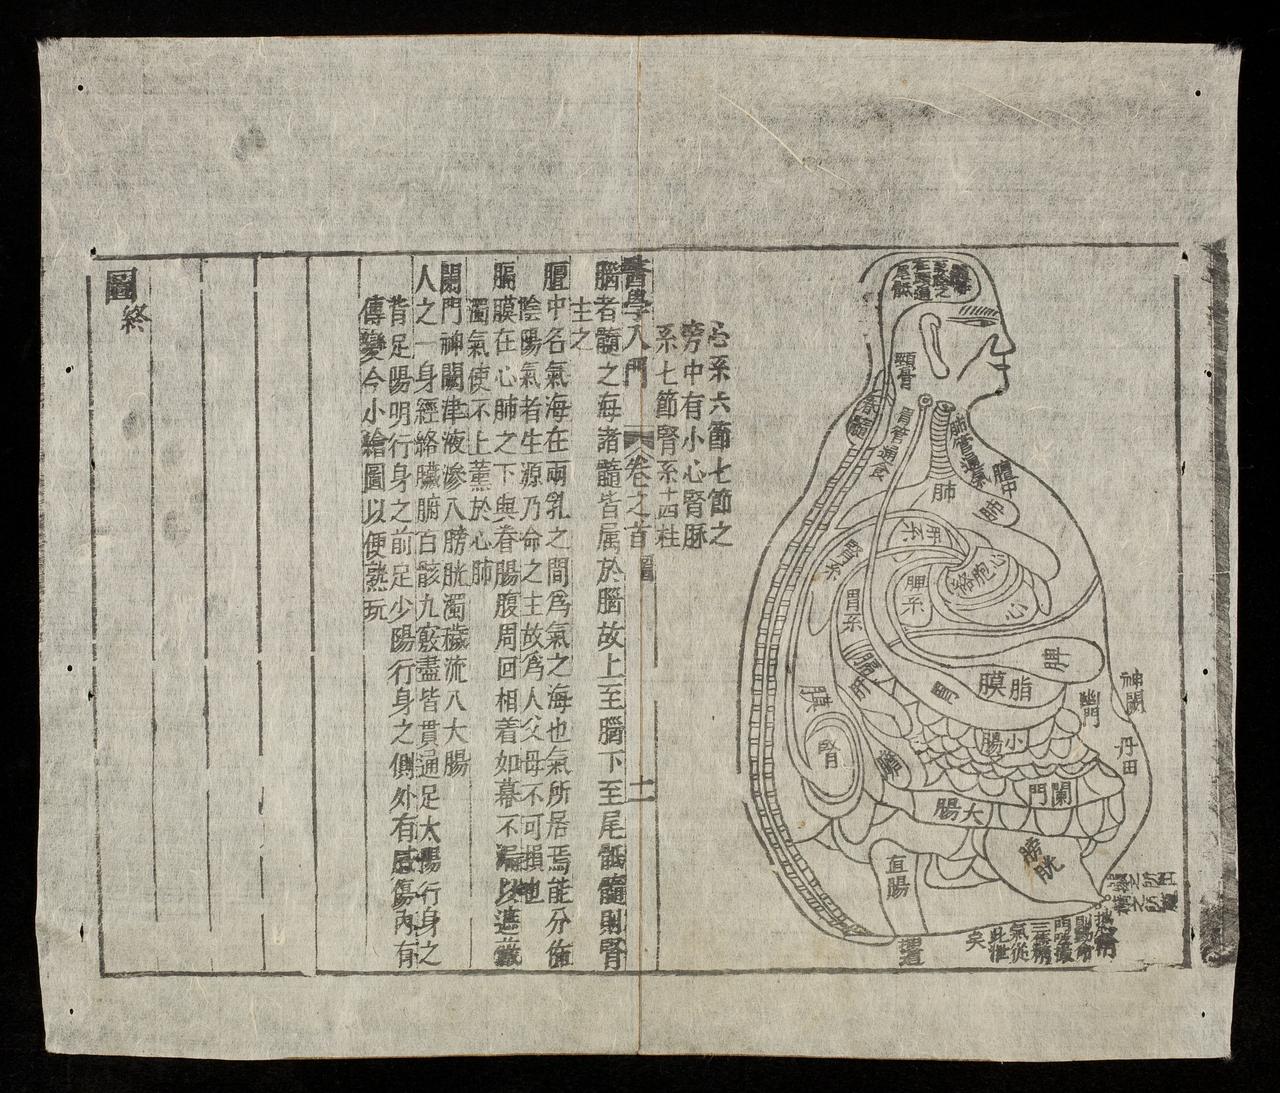 心系六節七節之
旁中有小心腎脉
系七節腎系十四柱
髓海
顖骨
脊髓
胃管通食
肺管通氣
膻中
肺
肺
肝系
腎系
脾系
心包絡
心
胃系
脾
膈
肝
胃
脂膜
膜
腎
膽
小腸
幽門
神闕
丹田
闌門
大腸
膀胱
直腸
矣
醫學入門
卷之首
圖
十一
腦者髓之海諸髓皆属於腦故上至腦下至尾骶髓則腎
主之
膻中名氣海在兩乳之間為氣之海也氣所居焉能分佈
陰陽氣者生源乃命之主故為人父母不可損也
膈膜在心肺之下與脊腸腹周回相着如幕不漏以遮蔽
濁氣使不上薰於心肺
闌門神闕津液滲入膀胱濁穢流入大腸
人之一身經絡臟腑百骸九竅盡皆貫通足太陽行身之
背足陽明行身之前足少陽行身之側外有感傷內有
傳變今小繪圖以便熟玩
圖終